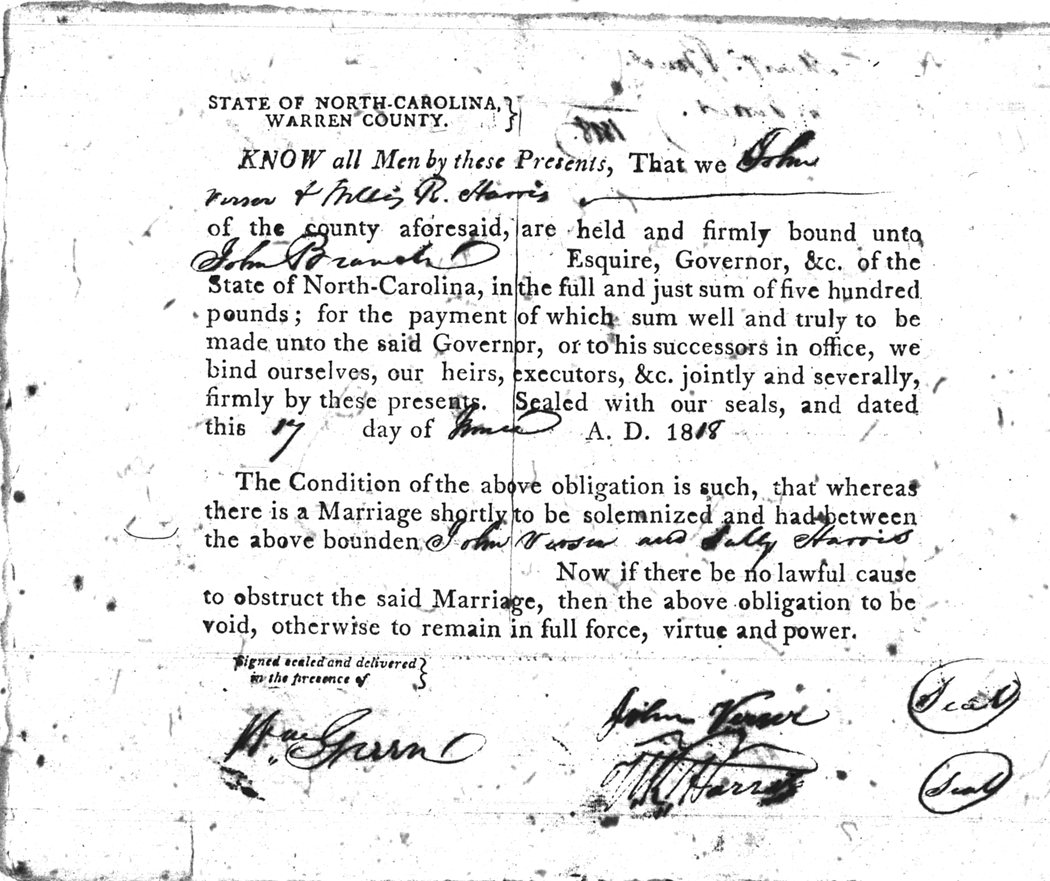 STATE OF NORTH-CAROLINA,
WARREN COUNTY.
1818
KNOW all Men by these Presents, That we John
Verser & Willis R. Harris
of the county aforesaid, are held and firmly bound unto
John Branch Esquire, Governor, &c. of the
State of North-Carolina, in the full and just sum of five hundred
pounds; for the payment of which sum well and truly to be
made unto the said Governor, or to his successors in office, we
bind ourselves, our heirs, executors, &c. jointly and severally,
firmly by these presents. Sealed with our seals, and dated
this 17 day of A. D. 1818
The Condition of the above obligation is such, that whereas
there is a Marriage shortly to be solemnized and had between
the above bounden John Verser and Sally Harris
Now if there be no lawful cause
to obstruct the said Marriage, then the above obligation to be
void, otherwise to remain in full force, virtue and power.
Signed sealed and delivered
in the presence of
Wm Green
John Verser Seal
Harris Seal